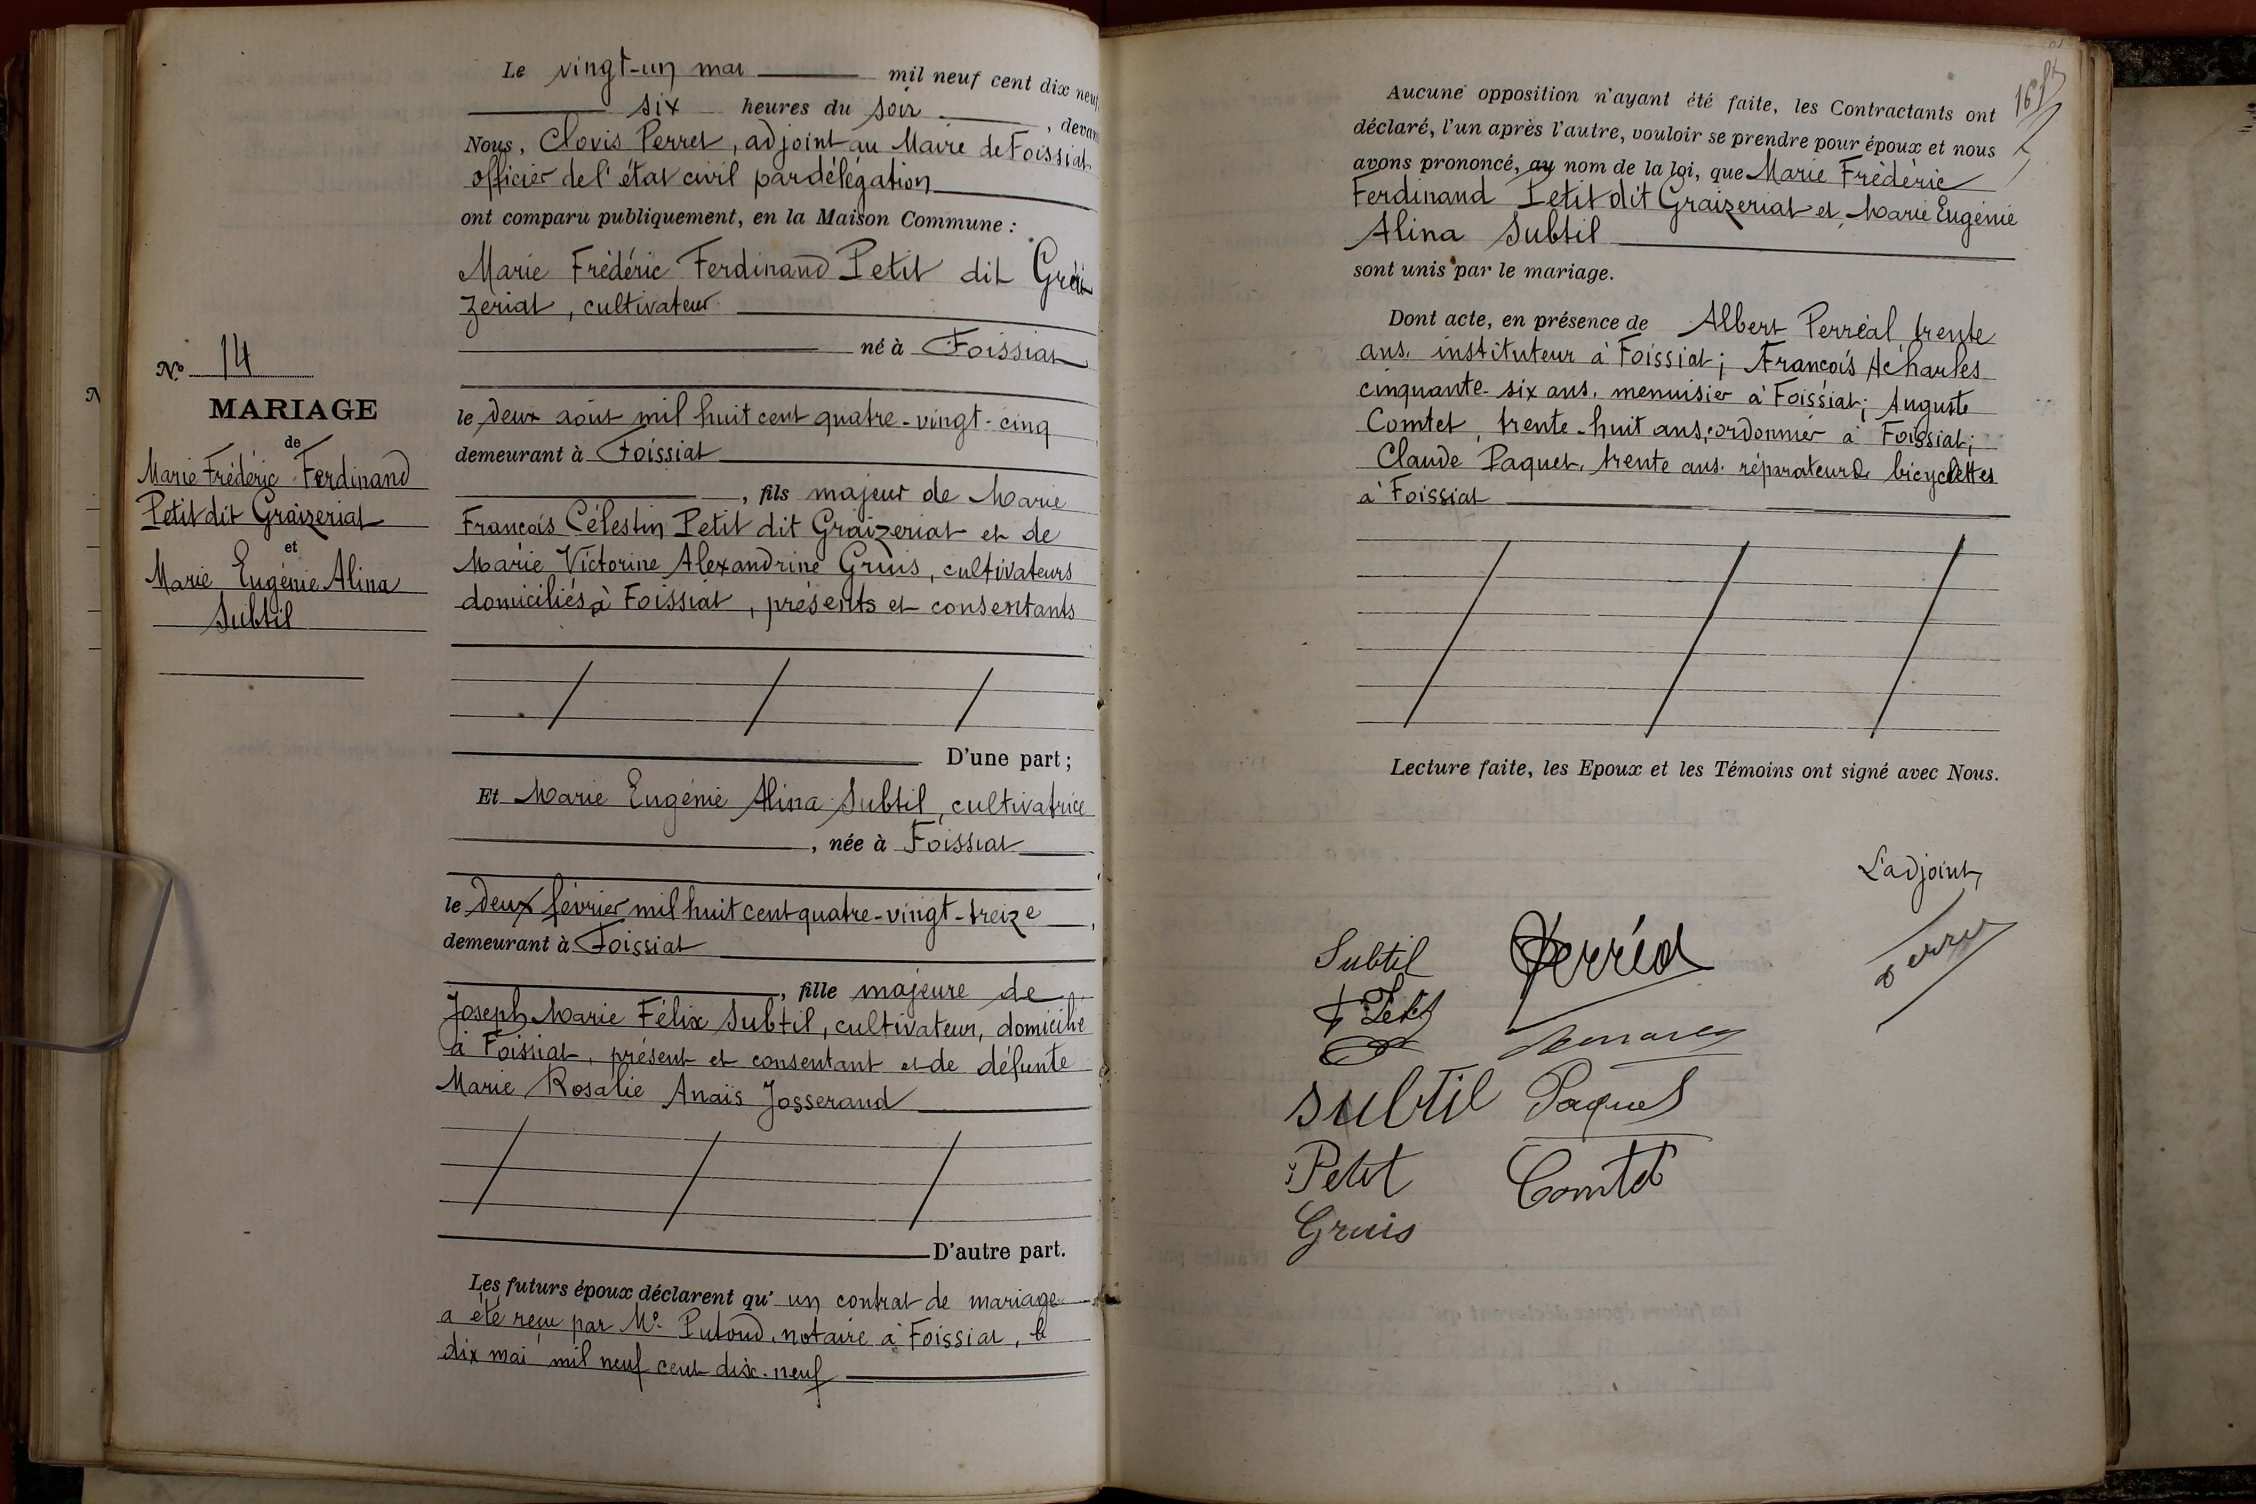 Le vingt-un mai mil neuf cent dix neuf
six heures du soir, devant
Nous, Clovis Perret, adjoint au Maire de Foissiat,
officier de l'état civil par délégation
ont comparu publiquement, en la Maison Commune :
Marie Frédéric Ferdinand Petit dit Grai
zeriat, cultivateur
né à Foissiat
No 14
MARIAGE
de
Marie Frédéric Ferdinand
Petit dit Graizeriat
et
Marie Eugénie Alina
Subtil
le deux août mil huit cent quatre-vingt-cinq
demeurant à Foissiat
, fils majeur de Marie
François Célestin Petit dit Graizeriat et de
Marie Victorine Alexandrine Gruis, cultivateurs
domiciliés à Foissiat, présents et consentants
D'une part ;
Et Marie Eugénie Alina Subtil, cultivatrice
, née à Foissiat
le deux février mil huit cent quatre-vingt-treize,
demeurant à Foissiat
, fille majeure de
Joseph Marie Félix Subtil, cultivateur, domicilié
à Foissiat, présent et consentant et de défunte
Marie Rosalie Anaïs Josserand
D'autre part.
Les futurs époux déclarent qu' un contrat de mariage
a été reçu par Me Putoud, notaire à Foissiat, le
dix mai mil neuf cent dix-neuf
Aucune opposition n'ayant été faite, les Contractants ont
déclaré, l'un après l'autre, vouloir se prendre pour époux et nous
avons prononcé, au nom de la loi, que Marie Frédéric
Ferdinand Petit dit Graizeriat et Marie Eugénie
Alina Subtil
sont unis par le mariage.
Dont acte, en présence de Albert Perréal trente
ans, instituteur à Foissiat ; François Acharles
cinquante-six ans, menuisier à Foissiat ; Auguste
Comtet, trente-huit ans, cordonnier à Foissiat ;
Claude Paquet, trente ans, réparateur de bicyclettes
à Foissiat
Lecture faite, les Epoux et les Témoins ont signé avec Nous.
L'adjoint,
Perret
Subtil
Perréal
F Petit
Subtil
Paquet
Petit
Comtet
Gruis